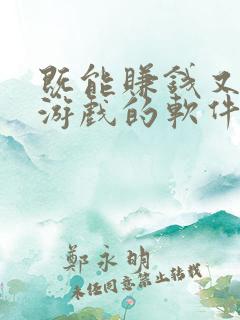 既能賺錢又
游戲的軟件
鄭永明
未经同意禁止转载